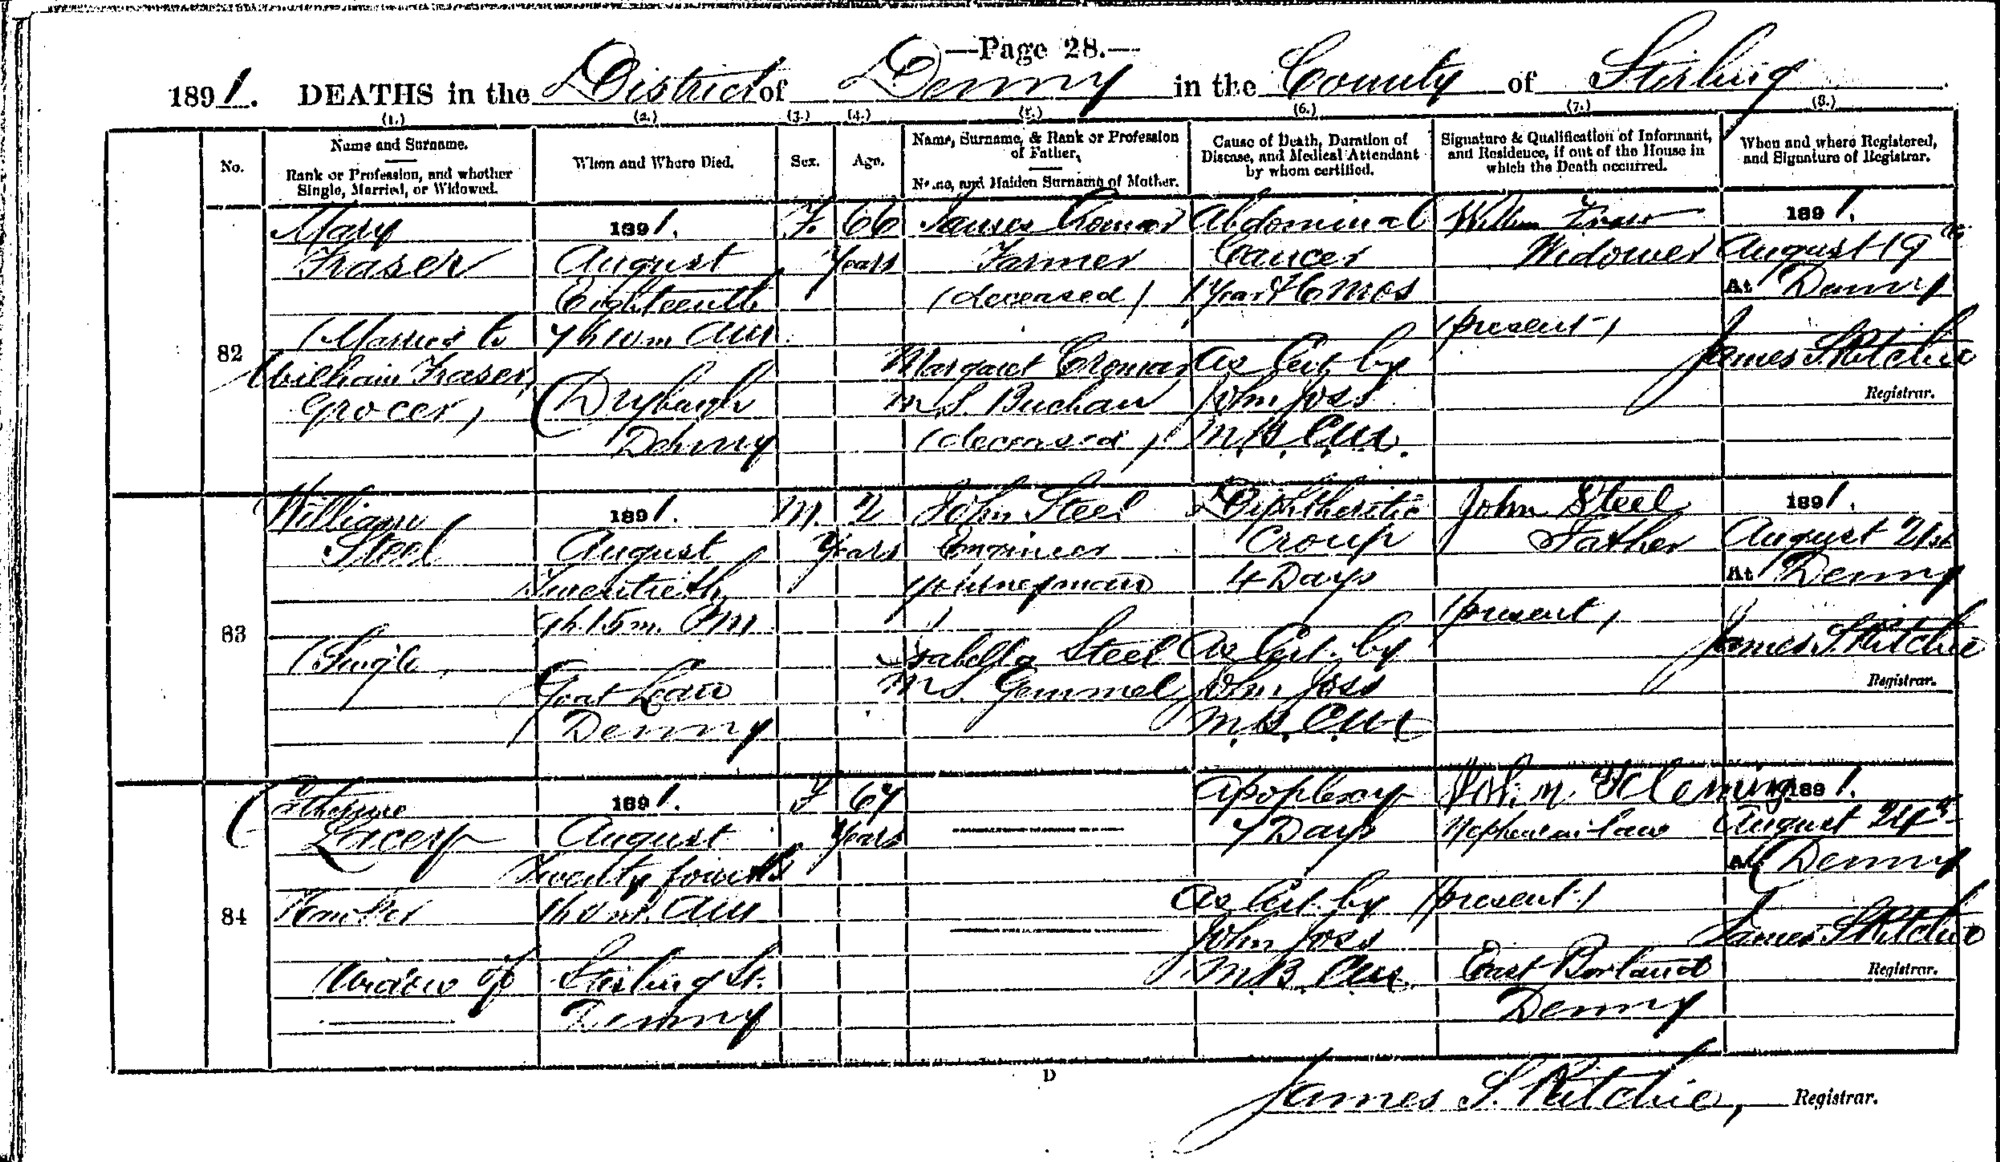 —Page 28.—
1891. DEATHS in the District of Denny in the County of Stirling
(1.) (2.) (3.) (4.) (5.) (6.) (7.) (8.)
No.
Name and Surname.
Rank or Profession, and whether
Single, Married, or Widowed.
When and Where Died.
Sex.
Age.
Name, Surname, & Rank or Profession
of Father,
Name, and Maiden Surname of Mother.
Cause of Death, Duration of
Disease, and Medical Attendant
by whom certified.
Signature & Qualification of Informant,
and Residence, if out of the House in
which the Death occurred.
When and where Registered,
and Signature of Registrar.
82
Mary
Fraser
(Married to
William Fraser
Grocer)
1891.
August
Eighteenth
7h 10m AM
Denny
F.
66
Years
James Cromar
Farmer
(deceased)
Margaret Cromar
M.S. Buchan
(deceased)
Abdominal
Cancer
1 Year & 6 mos
As Cert. by
John Joss
M.B. C.M.
William Fraser
Widower
(present)
1891.
August 19th
At Denny
James S. Ritchie
Registrar.
83
William
Steel
(Single)
1891.
August
Twentieth
9h. 15m. PM
Denny
M.
2
Years
John Steel
Engineer
journeyman
Isabella Steel
M.S. Gemmel
Diphtheritic
Croup
4 Days
As Cert. by
John Joss
M.B. C.M.
John Steel
Father
(present)
1891.
August 21st
At Denny
James S. Ritchie
Registrar.
84
Catherine
Lacey
Hawker
Widow of
1891.
August
Twenty fourth
AM
Stirling St.
Denny
F
67
Years
Apoplexy
7 Days
As Cert. by
John Joss
M.B. C.M.
John Fleming
Nephew in law
(present)
East Borland
Denny
1891.
August 24th
At Denny
James S. Ritchie
Registrar.
D
James S. Ritchie, Registrar.